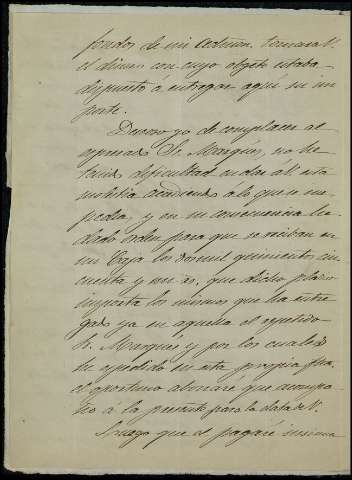 fondos de mi cedieran. tomara V.
el dinero con cuyo objeto estaba
dispuesto á entregar aquí su im
porte.
Deseoso yo de complacer al
expresado Sr. Marqués, no he
tenido dificultad en dar á V. esta
molestia accediendo a lo que se me
pedia, y en su consecuencia he
dado orden para que se reciban en
mi Caja los dos mil quinientos cin
cuenta y que dicho plazo
importa los mismos que ha entre
gado ya en aquella el repetido
Sr. Marqués y por los cuales
he expedido en esta propia fecha
el oportuno abonaré que acompa
ño á la presente para la data de V.
Supongo que el pagaré